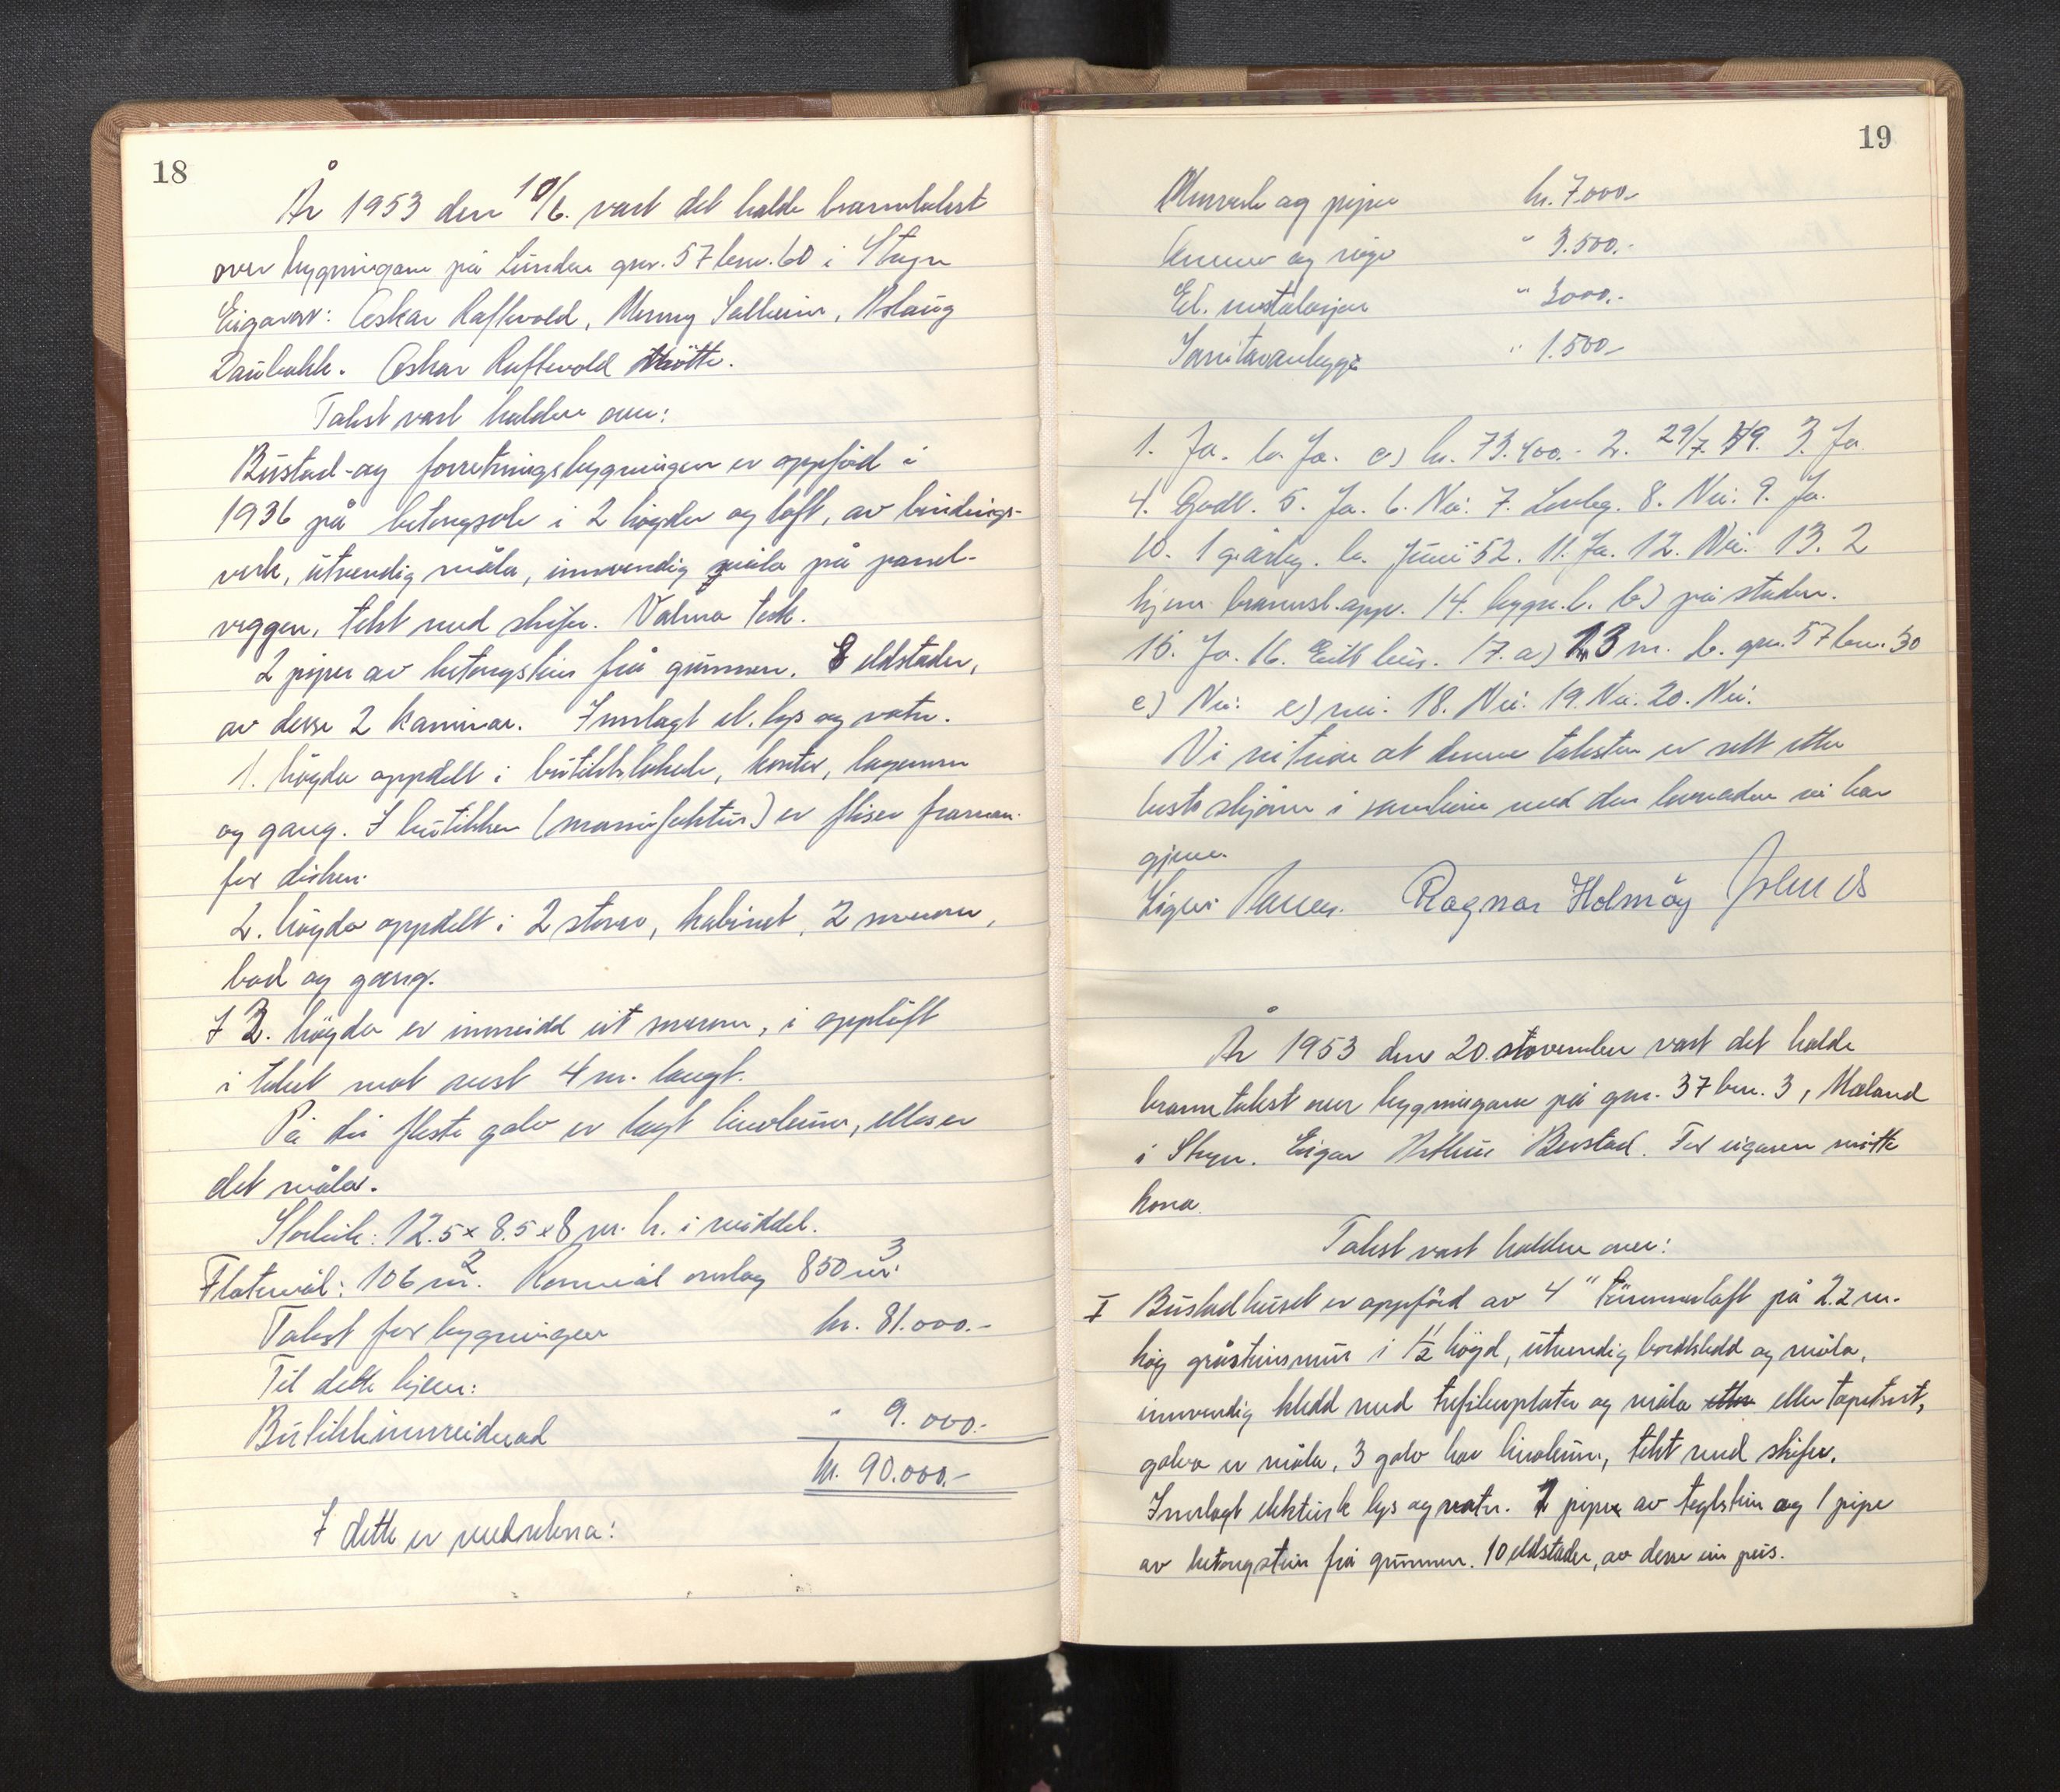 18
År 1953 den 10/6. vart det halde branntakst
over bygningane på Lunden gnr. 57 bnr. 60 i Stryn
Eigarar: Oskar Raftevold, Menny Solheim, Aslaug
Oskar Raftevold møtte.
Takst vart halden over:
Bustad- og forretningsbygningen er oppförd i
1936 på betongsole i 2 högder og loft, av bindings-
verk, utvendig måla, innvendig måla på panel-
veggen, tekt med skifer. Valma tak.
2 piper av betongstein frå grunnen. 8 eldstader,
av desse 2 kaminar. Innlagt el. lys og vatn.
1. högda oppdelt i butikklokale, kontor, lagerrom
og gang. I butikken (manufaktur) er fliser framan-
for disken.
2. högda oppdelt i 2 stover, kabinet, 2 soverom,
bad og gang.
I 3. högda er innreidd eit soverom, i opplöft
i taket mot vest 4 m. langt.
På dei fleste golv er lagt linoleum, elles er
det måla.
Storleik: 12.5 x 8.5 x 8 m. h. i middel.
Flatemål: 106 m². Rommål omlag 850 m³.
Takst for bygningen kr. 81.000.-
Til dette kjem:
Butikkinnreidnad " 9.000.-
kr. 90.000.-
I dette er medrekna:
19
Murverk og piper kr. 7.000.-
Kaminar og " 3.500.-
El. installasjon " 3000.-
Sanitæranlegget " 1.500.-
1. Ja. b. Ja. c) kr. 73.400.- 2. 29/7. 49. 3. Ja.
4. Godt. 5. Ja. 6. Nei. 7. Lovleg. 8. Nei. 9. Ja.
10. 1 g. årleg. b. Juni 52. 11. Ja. 12. Nei. 13. 2
kjem. brannsl. app. 14. bygn. b. b) på staden.
15. Ja. 16. Eitt hus. 17. a) 23 m. b. gnr. 57 bnr. 30
c) Nei. e) nei. 18. Nei. 19. Nei. 20. Nei.
Vi vitnar at denne taksten er sett etter
beste skjönn i samhøve med den lovnaden vi har
gjeve.
Ragnar Holmöy
År 1953 den 20. november vart det halde
branntakst over bygningane på gnr. 37 bnr. 3, Mæland
i Stryn. Eigar Arthur Bustad. For eigaren møtte
kona.
Takst vart halden over:
I Bustadhuset er oppförd av 4" tömmerlaft på 2.2 m.
høg gråsteinsmur i 1 1/2 högd, utvendig bordkledd og måla,
innvendig kledd med trefiberplater og måla etter eller tapetsert,
golva er måla, 3 golv har linoleum, tekt med skifer.
Innlagt elektrisk lys og vatn. 1 pipe av teglstein og 1 pipe
av betongstein frå grunnen. 10 eldstader, av desse ein peis.